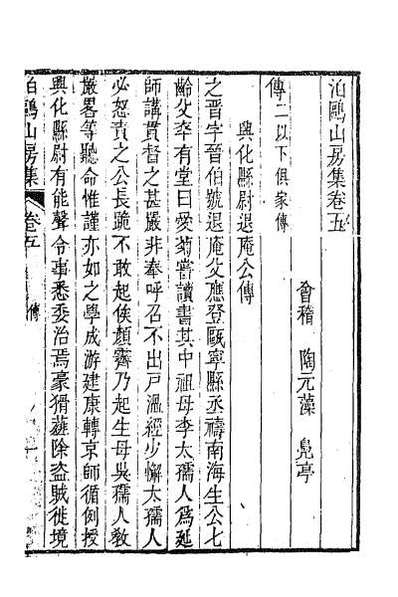 泊鷗山房集卷五
會稽　陶元藻　鳧亭
傳二以下俱家傳
興化縣尉退庵公傳
之晋字晉伯號退庵父應登甌寧縣丞禱南海生公七
齡父卒有堂曰愛菊嘗讀書其中祖母李太孺人爲延
師講貫督之甚嚴非奉呼召不出戸溫經少懈太孺人
必怒責之公長跪不敢起俟顔霽乃起生母吳孺人敎
嚴畧等聽命惟謹亦如之學成游建康轉京師循例授
興化縣尉有能聲令事悉委治焉豪猾蕪除盗賊徙境
泊鷗山房集
卷五
傳
一